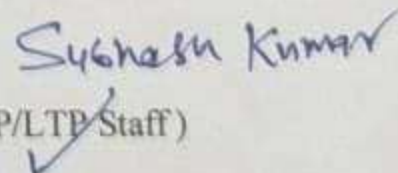 Subhash Kumar
P/LTP Staff)